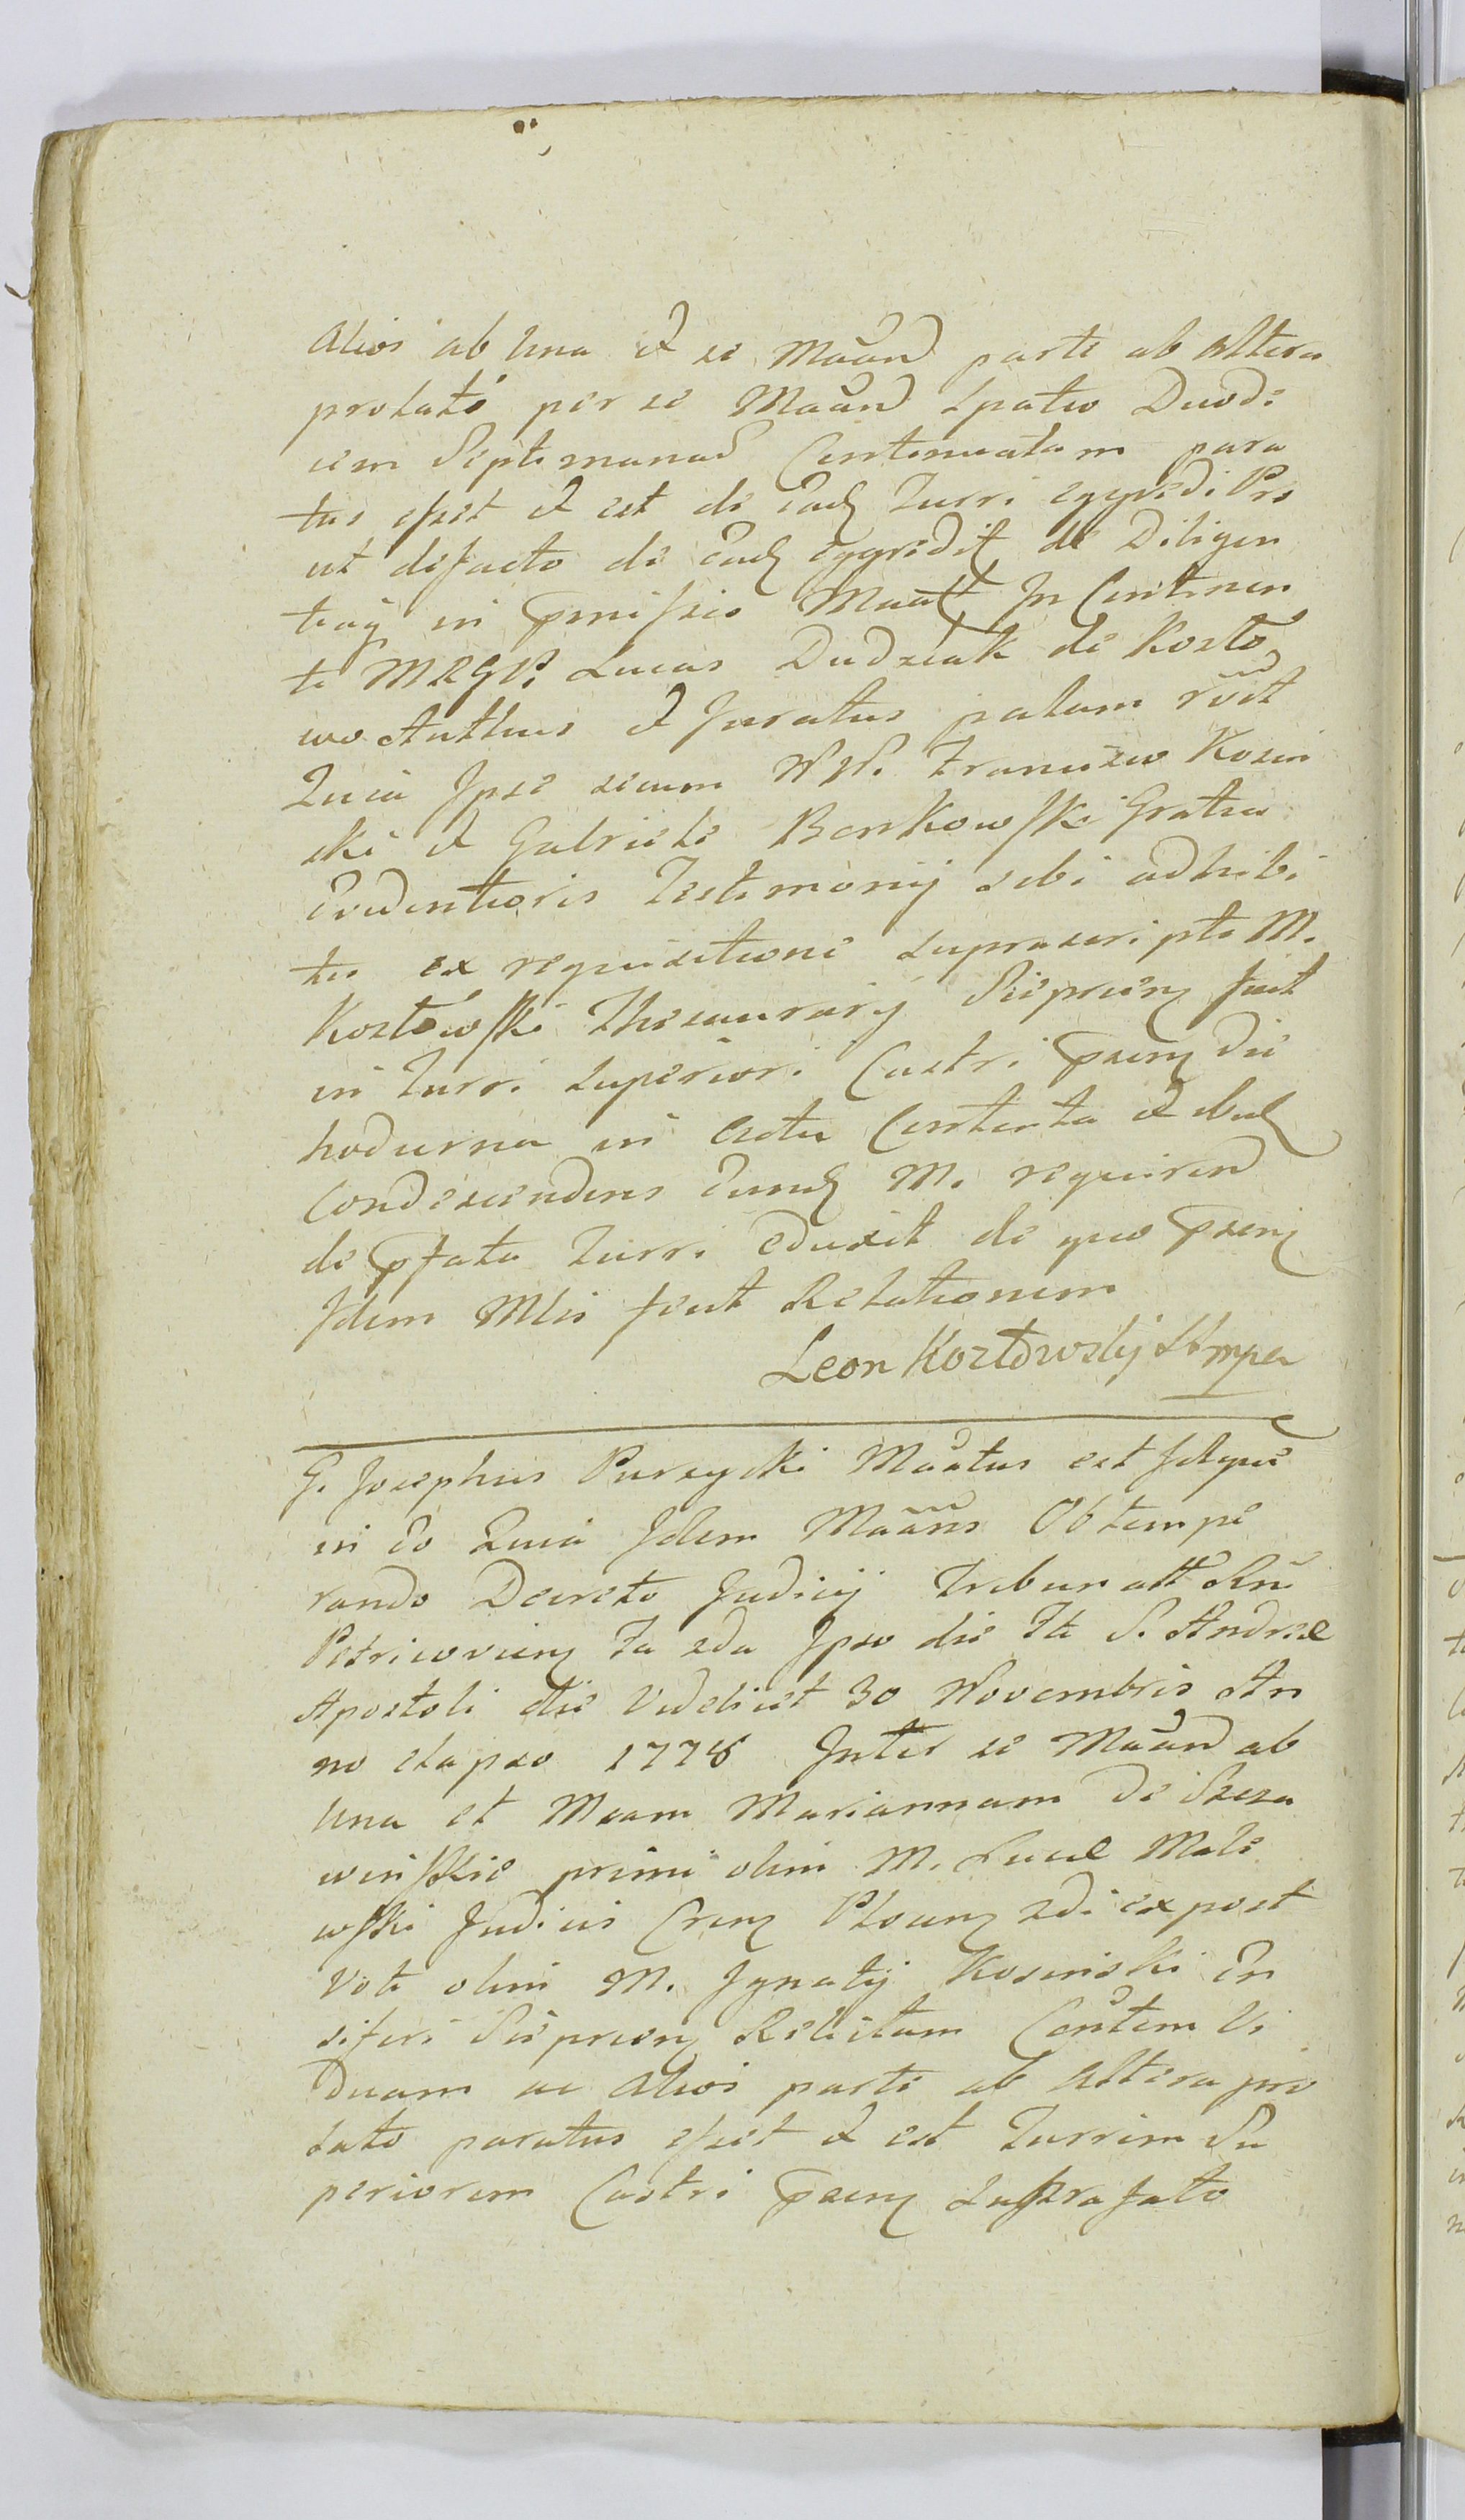 Alios ab Una et se Maãnd parte ab altera
prolato per se Maãnd spatio Duode
cim Septimanas Continuatam para
tus esset et est de Eadq Turri egredi Pro
ut defacto de Eadq egredit de Diligen
tiaq in pmissis Maatt In Continen
ti MRGP. Lucas Dudziak de Kozło
wo Autthus et Juratus palam rõdt
Quia Ipse secum NN. Francisco Kosin
ski et Gabriele Bonkowski Gratia
Evidentioris Testimonij sibi adhibi
tis ex requisitione suprascripto M.
Kozłowski Thesaurarij Sieprcens fuit
in Turri Superiori Castri psens die
hodierna in Actu Contenta et ibidq
Condescendens Eundq M. requirend
de pfata Turri eduxit de quo psens
Idem Mlis fecit Relationem
Leon Kozłowskij SS mpa
G. Josephus Pursycki Maatus est Idque
in Eo Quia Idem Maãns Obtempe
rando Decreto Judicij Tribunatt Rni
Petricoviens Fa 2da Ipso die Fti S. Andreæ
Apostoli die Videlicet 30 Novembris An
no elapso 1778 Inter se Maãnd ab
Una et Mcam Mariannam de Szcza
winskie primi olim M. Lucæ Male
wski Judicis Crens Plocens 2di expost
Voti olim M. Ignatij Kosinski En
siferi Sieprcens Relictam Contem Vi
duam ac Alios parte ab Altera pro
lato paratus esset et est Turrim Su
periorem Castri psens Suprafato